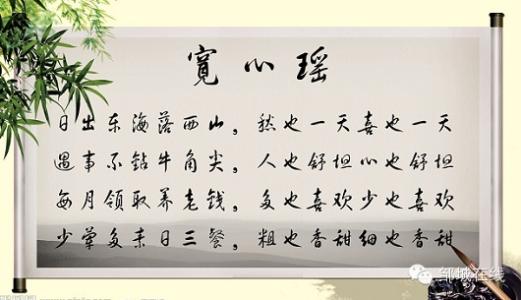 寬心瑶
日出东海落西山,愁也一天喜也一天
遇事不钻牛角尖,人也舒坦心也舒坦
每月领取养老钱,多也喜欢少也喜欢
少荤多素日三餐,粗也香甜细也香甜
邹城在线